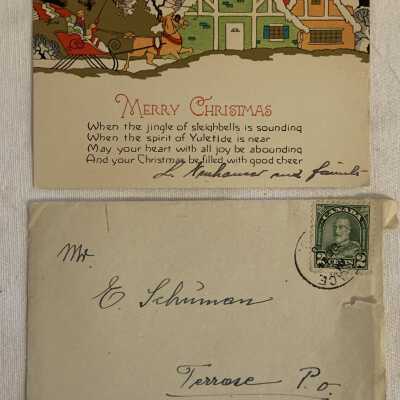 MERRY CHRISTMAS
When the jingle of sleighbells is sounding
When the spirit of Yuletide is near
May your heart with all joy be abounding
And your Christmas be filled with good cheer
L. Neuhauser and family
CANADA
2 CENTS 2
Mr.
E. Schuman
Terrace P.O.